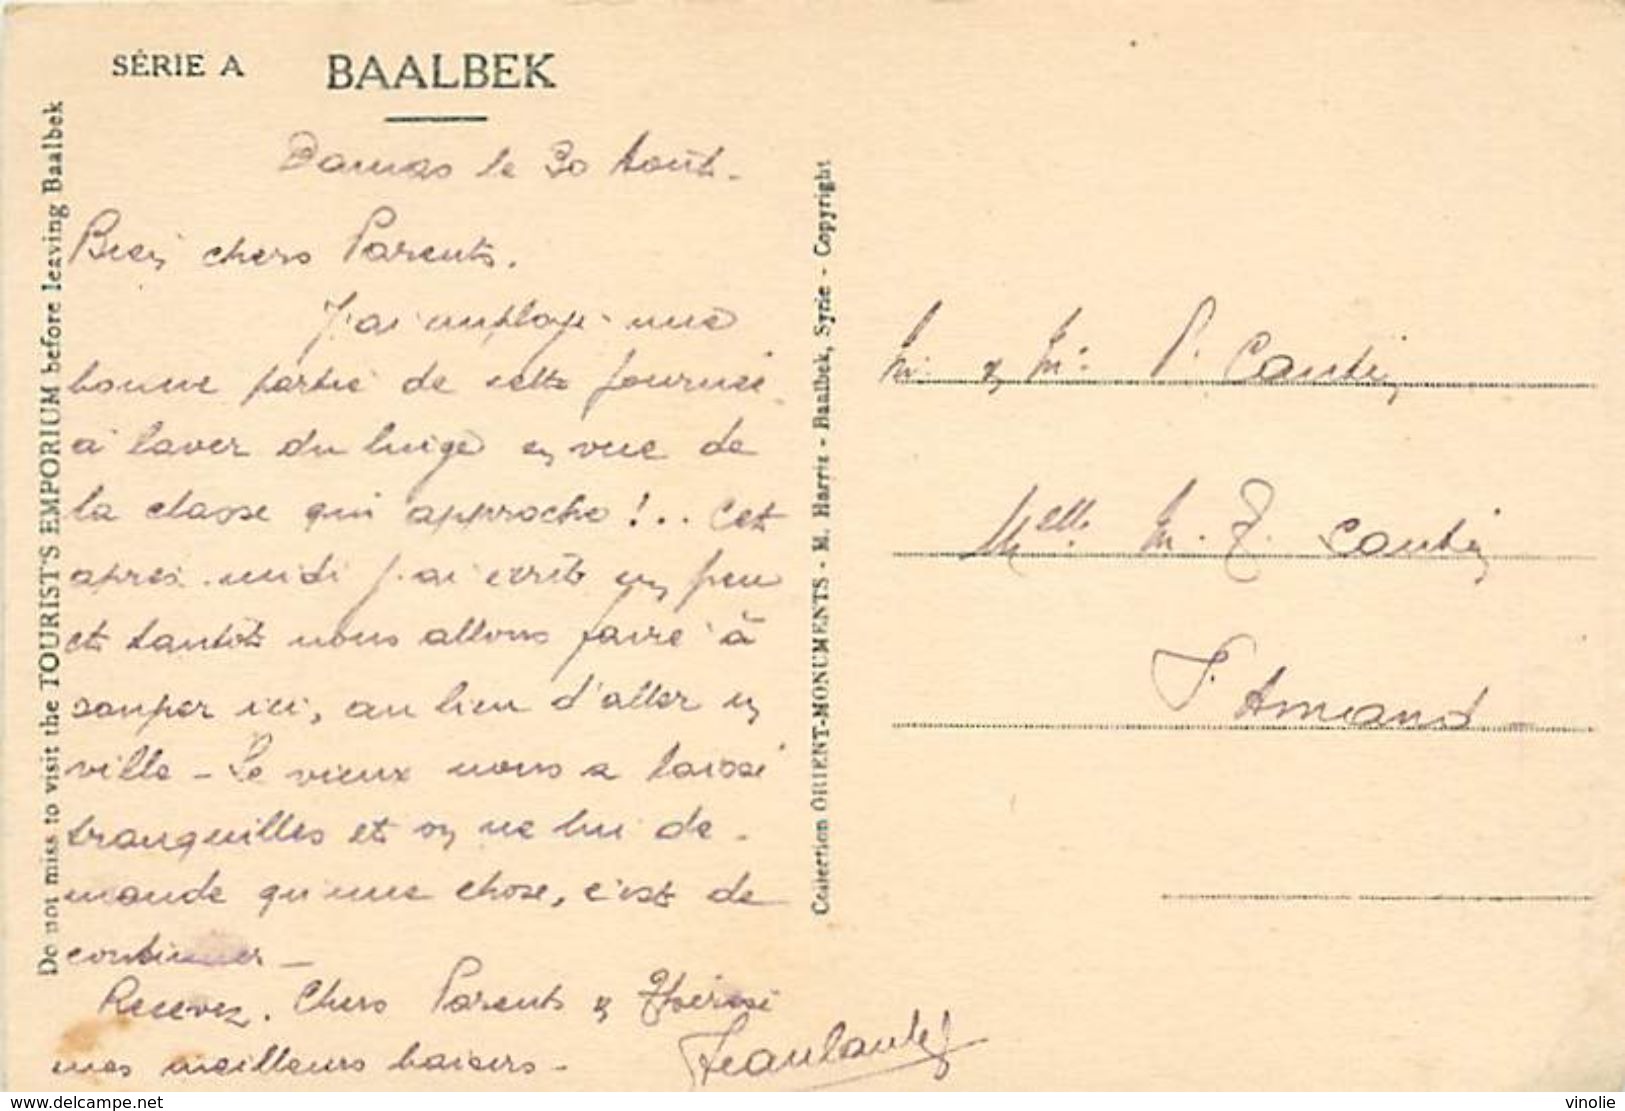 SÉRIE A
BAALBEK
Damas le 30 Août.
Bien chers Parents.
J'ai employé une
bonne partie de cette journée
à laver du linge en vue de
la classe qui approche !.. Cet
après-midi j'ai écrit un peu
et tantôt nous allons faire à
souper ici, au lieu d'aller en
ville - Le vieux nous a laissé
tranquilles et on ne lui de-
mande qu'une chose, c'est de
continuer -
Recevez. Chers Parents & Thérèse
mes meilleurs baisers -
Do not miss to visit the TOURIST'S EMPORIUM before leaving Baalbek
Collection ORIENT-MONUMENTS - M. Harris - Baalbek, Syrie - Copyright
M. & Me P. Cantin
Melle M. T. Cantin
St Amand
www.delcampe.net
vinolie